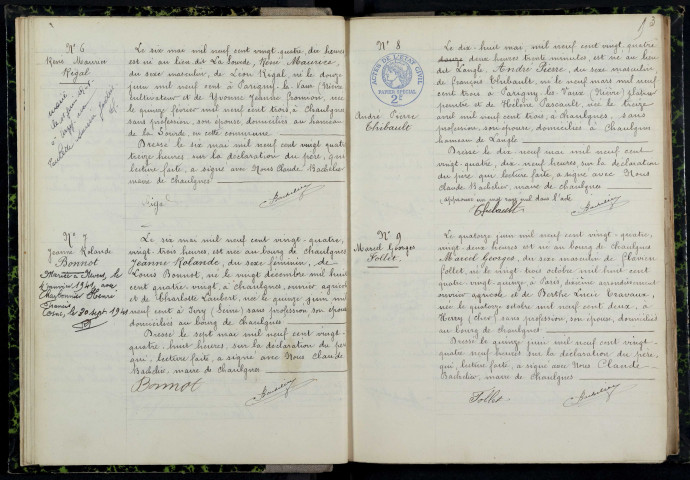 N° 6
René Maurice
Régal
Le six mai mil neuf cent vingt-quatre, dix heures
est né au lieu dit La Sourde, René Maurice,
du sexe masculin, de Léon Régal, né le douze
juin mil neuf cent à Parigny-la-Vaux (Nièvre)
cultivateur et de Yvonne Jeanne
le quinze février mil neuf cent trois, à Chaulgnes
sans profession, son épouse domiciliés au hameau
de la Sourde, en cette commune
Dressé le six mai mil neuf cent vingt quatre
treize heures sur la déclaration du père, qui
lecture faite, a signé avec Nous Claude Bachelier
maire de Chaulgnes
N° 7
Jeanne Rolande
Bonnot
Mariée à Nevers, le
janvier 1941, avec
Charbonnier Henri
Francis
Cosne, le 20 sept 1941
Le six mai mil neuf cent vingt-quatre,
vingt-trois heures, est née au bourg de Chaulgnes
Jeanne Rolande, du sexe féminin, de
Louis Bonnot, né le vingt décembre mil huit
cent quatre vingt, à Chaulgnes, ouvrier agricole
et de Charlotte Laubert, née le quinze juin mil
neuf cent à Ivry (Seine) sans profession son épouse
domiciliés au bourg de Chaulgnes
Dressé le sept mai mil neuf cent vingt-
quatre, huit heures, sur la déclaration du père
qui, lecture faite, a signé avec Nous Claude
Bachelier, maire de Chaulgnes
Bonnot
3
N° 8
ACTES DE L'ÉTAT CIVIL
PAPIER SPÉCIAL
2F
André Pierre
Thibault
Le dix-huit mai mil neuf cent vingt quatre
deux heures trente minutes, est né au lieu
dit Langle, André Pierre, du sexe masculin
de François Thibault, né le neuf mars mil neuf
cent trois à Parigny-les-Vaux (Nièvre) plâtrier
peintre et de Hélène Pascault, née le treize
avril mil neuf cent trois, à Chaulgnes, sans
profession, son épouse, domiciliés à Chaulgnes
hameau de Langle
Dressé le dix neuf mai mil neuf cent
vingt-quatre, dix neuf heures, sur la déclaration
du père qui lecture faite, a signé avec Nous
Claude Bachelier, maire de Chaulgnes
approuvé un mot rayé nul dans l'acte
Thibault
N° 9
Marcel Georges
Follet
Le quatorze juin mil neuf cent vingt-quatre,
vingt-deux heures est né au bourg de Chaulgnes
Marcel Georges, du sexe masculin de Flavien
Follet, né le vingt trois octobre mil huit cent
quatre-vingt-quinze, à Paris, sixième arrondissement
ouvrier agricole et de Berthe Lucie Travaux,
née le quatorze octobre mil neuf cent deux, à
Herry (Cher) sans profession, son épouse, domiciliés
au bourg de Chaulgnes
Dressé le quinze juin mil neuf cent vingt-
quatre neuf heures sur la déclaration du père,
qui, lecture faite a signé avec Nous Claude
Bachelier, maire de Chaulgnes
Follet